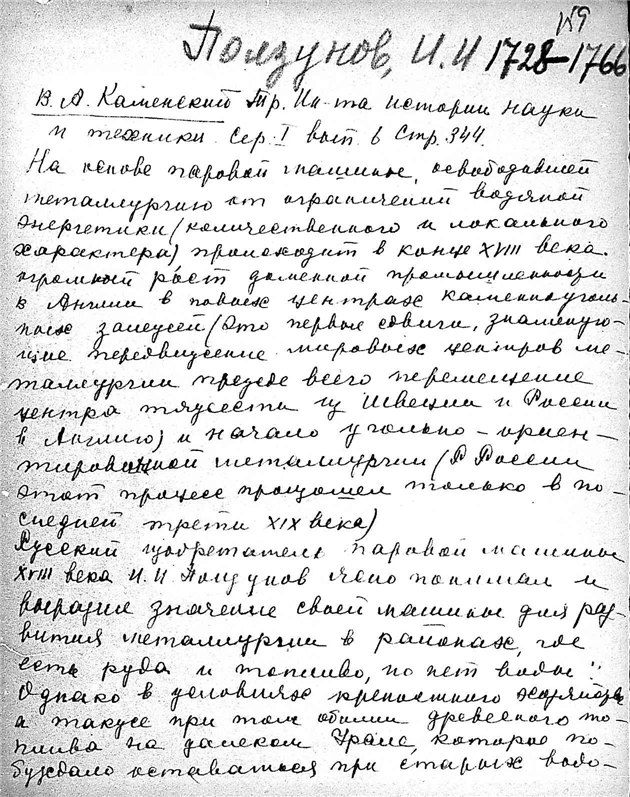 №9
Ползунов, И. И 1728–1766
В. А. Каменский Тр. Ин-та истории науки
и техники Сер. I вып 6 Стр. 344.
На основе паровой машины, освободившей
металлургию от ограничений водяной
энергетики (количественного и локального
характера) происходит в конце XVIII века.
огромный рост доменной промышленности
в Англии в новых центрах каменноуголь-
ных залежей (Это первые сдвиги, знаменую-
щие передвижение мировых центров ме-
таллургии прежде всего перемещение
центра тяжести из Швеции и России
в Англию) и начало угольно-ориен-
тированной металлургии (В России
этот процесс прошел только в по-
следней трети XIX века)
Русский изобретатель паровой машины
XVIII века И. И Ползунов ясно понимал и
выразил значение своей машины для раз-
вития металлургии в районах, где
есть руда и топливо, но нет воды"
Однако в условиях крепостного хозяйства
а также при том обилии древесного то-
плива на далеком Урале, которое по-
буждало оставаться при старых водо-